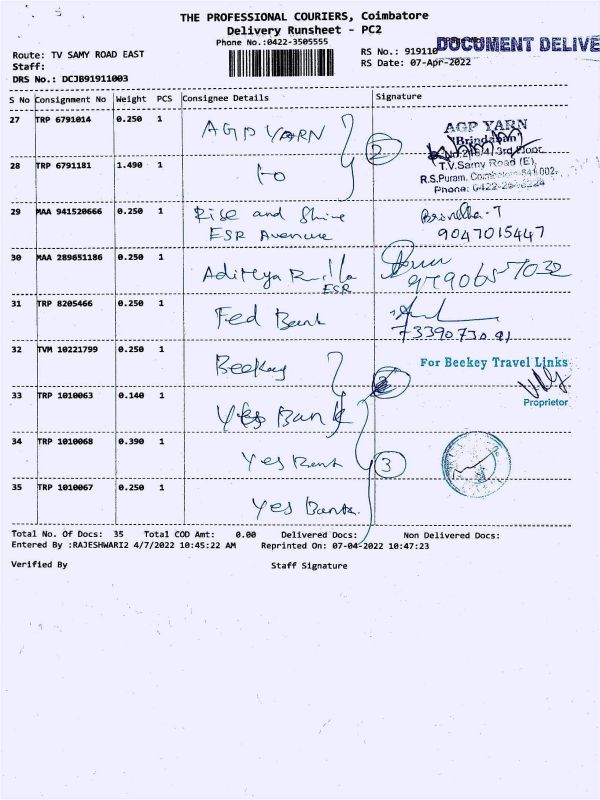 THE PROFESSIONAL COURIERS, Coimbatore
Delivery Runsheet - PC2
Phone No.:0422-3505555
Route: TV SAMY ROAD EAST
RS No.: 919110
DOCUMENT DELIVE
Staff:
RS Date: 07-Apr-2022
DRS No.: DCJB91911003
S No Consignment No Weight PCS Consignee Details Signature
27 TRP 6791014 0.250 1 AGP YARN
2
AGP YARN
"Brindavan"
3rd Floor
T.V.Samy Road (E),
R.S.Puram, Coimbatore-641 002.
Phone: 0422-
28 TRP 6791181 1.490 1
29 MAA 941520666 0.250 1 Rise and Shine
ESR Avenue
9047015447
30 MAA 289651186 0.250 1 Aditya Birla
ESR
31 TRP 8205466 0.250 1 Fed Bank
32 TVM 10221799 0.250 1 Beekay
For Beekey Travel Links
Proprietor
33 TRP 1010063 0.140 1 Yes Bank
34 TRP 1010068 0.390 1 Yes Bank
3
35 TRP 1010067 0.250 1 Yes Bank.
Total No. Of Docs: 35 Total COD Amt: 0.00 Delivered Docs: Non Delivered Docs:
Entered By :RAJESHWARI2 4/7/2022 10:45:22 AM Reprinted On: 07-04-2022 10:47:23
Verified By Staff Signature